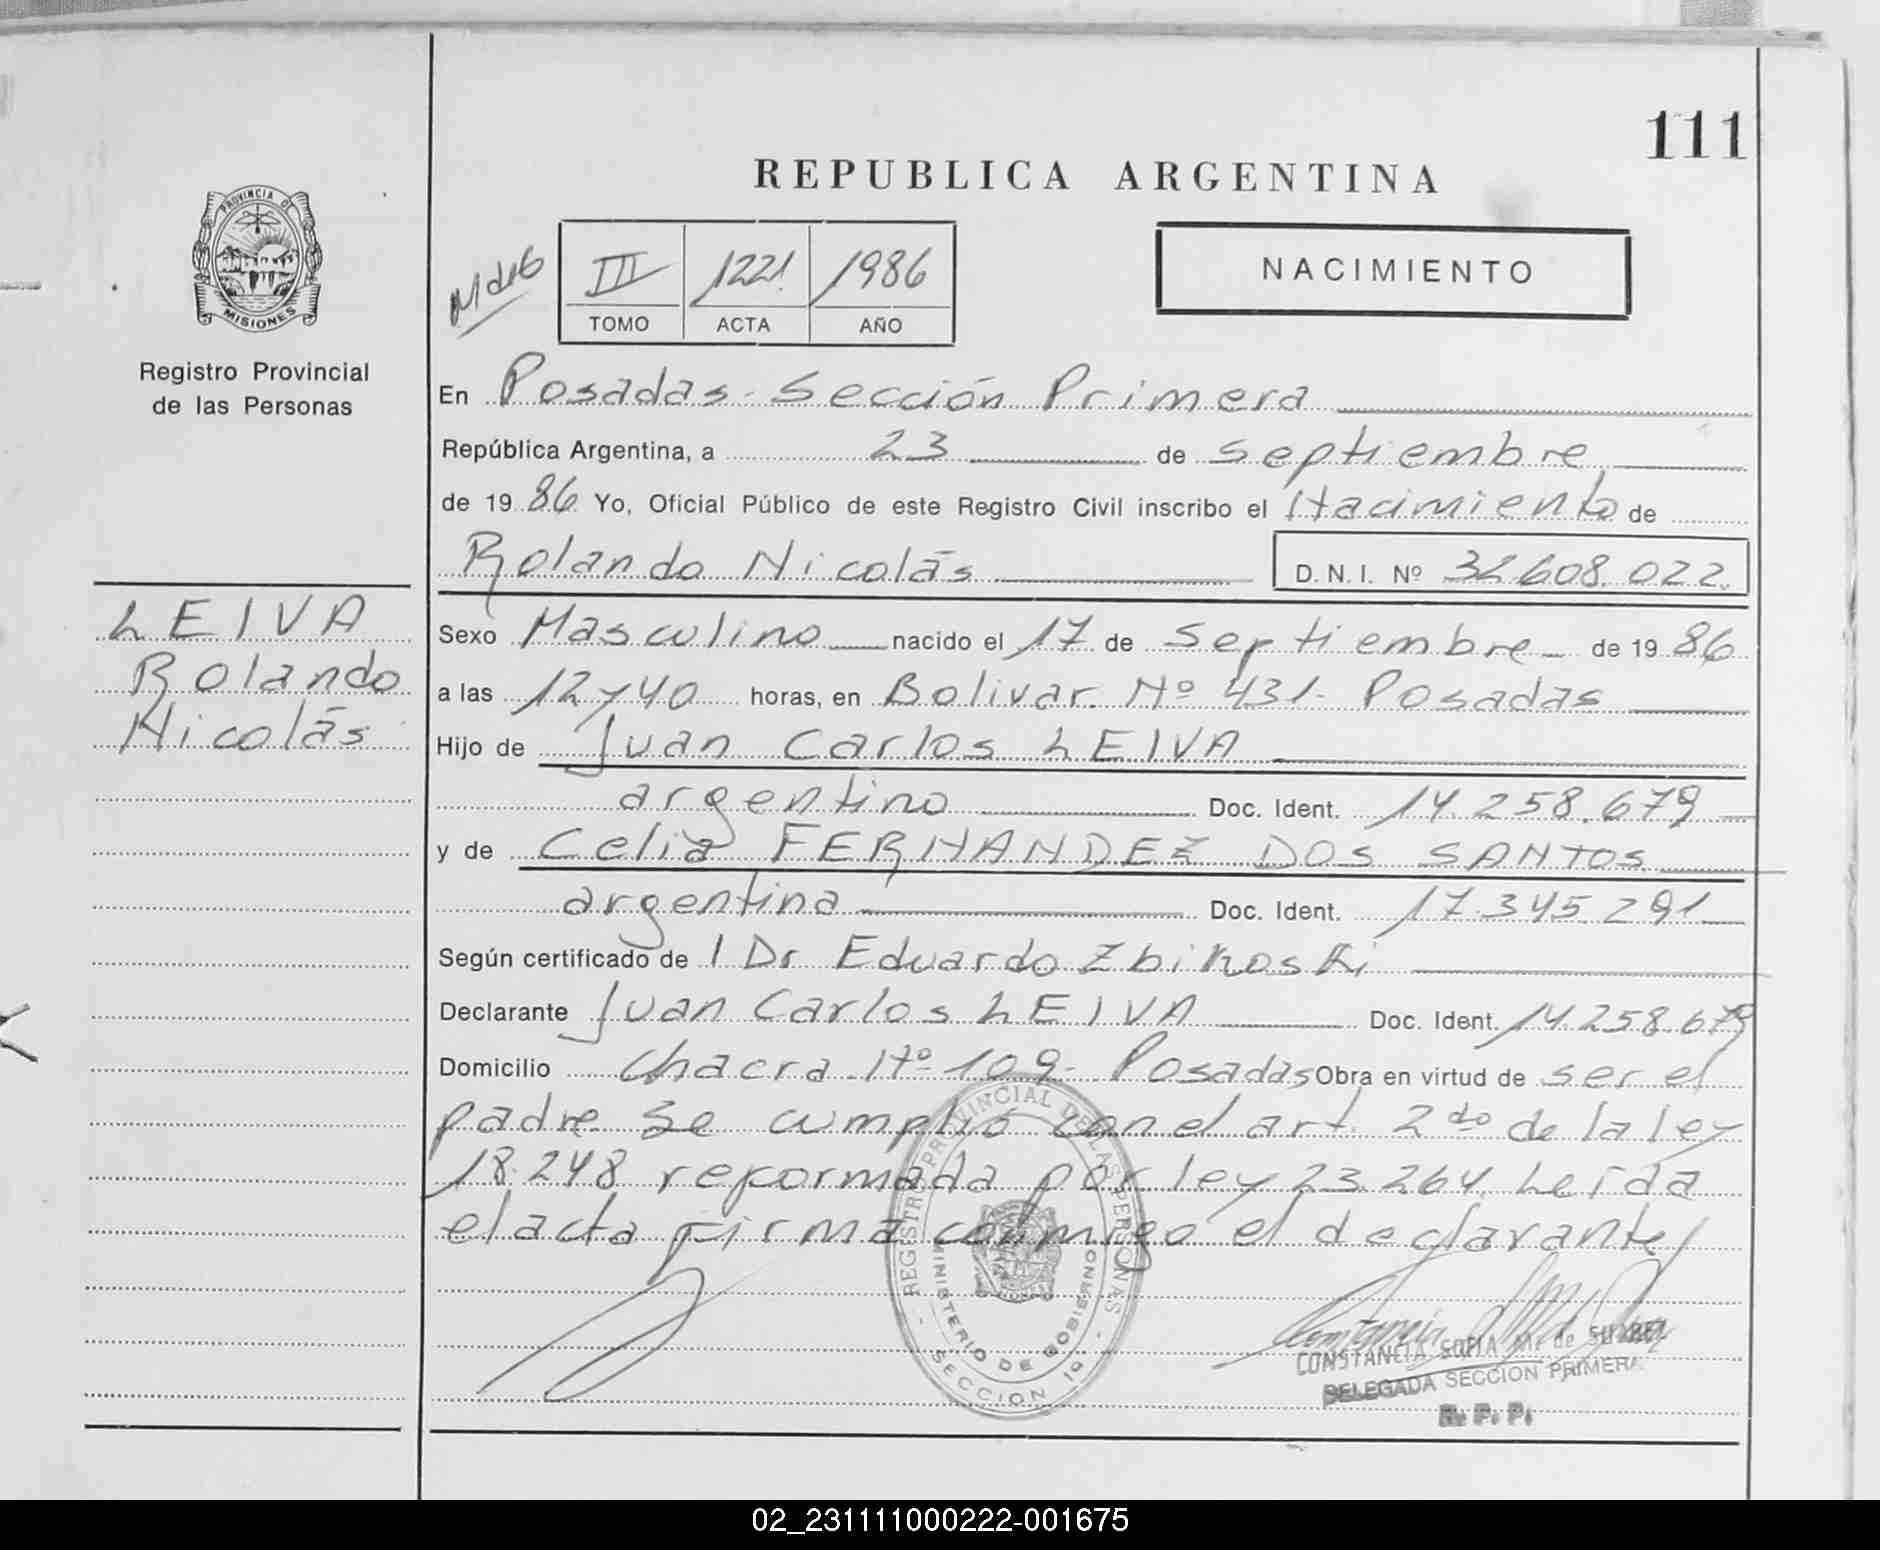 111
REPUBLICA ARGENTINA
PROVINCIA DE
MISIONES
Registro Provincial
de las Personas
III 1221 1986
TOMO ACTA AÑO
NACIMIENTO
En Posadas - Sección Primera
República Argentina, a 23 de septiembre
de 19 86 Yo, Oficial Público de este Registro Civil inscribo el Nacimiento de
Rolando Nicolás D.N.I. Nº 32.608.022.
LEIVA
Rolando
Nicolás
Sexo Masculino nacido el 17 de septiembre de 19 86
a las 12 y 40 horas, en Bolivar Nº 431 - Posadas
Hijo de Juan Carlos LEIVA
argentino Doc. Ident. 14.258.679
y de Celia FERNANDEZ DOS SANTOS
argentina Doc. Ident. 17.345.291
Según certificado de l Dr Eduardo Zbikoski
Declarante Juan Carlos LEIVA Doc. Ident. 14.258.679
Domicilio Chacra Nº 109 - Posadas Obra en virtud de ser el
padre Se cumplió con el art. 2do de la ley
18.248 reformada por ley 23.264. Leída
el acta firma conmigo el declarante
REGISTRO PROVINCIAL DE LAS PERSONAS
MINISTERIO DE GOBIERNO
SECCION 1º
CONSTANCIA SOFIA M. de SUAREZ
DELEGADA SECCION PRIMERA
R. P. P.
02_231111000222-001675